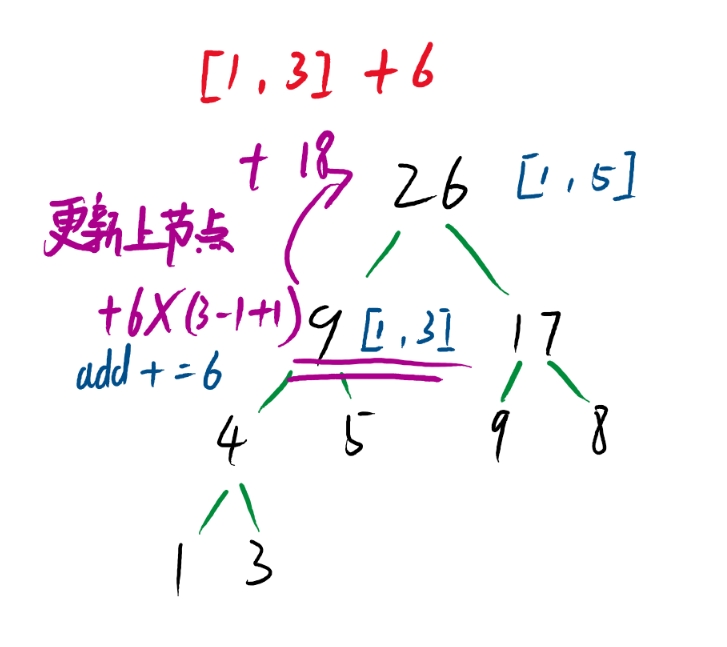 [1,3] +6
+ 18
26 [1,5]
更新上节点
+6×(3-1+1) 9 [1,3] 17
add + = 6
4 5 9 8
1 3